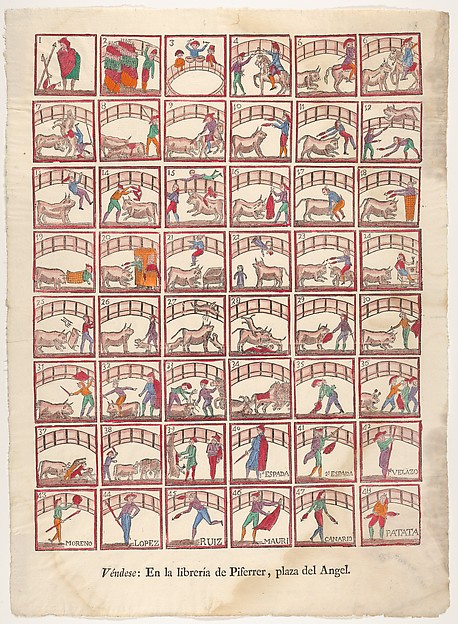 1 2 3 4 5 6
7 8 9 10 11 12
13 14 15 16 17 18
19 20 21 22 23 24
25 26 27 28 29 30
31 32 33 34 35
37 38 39 40 41 42
ESPADA ESPADA VELAZO
43 44 45 46 47 48
MORENO LOPEZ RUIZ MAURI CANARIO PATATA
Véndese: En la librería de Piferrer, plaza del Angel.